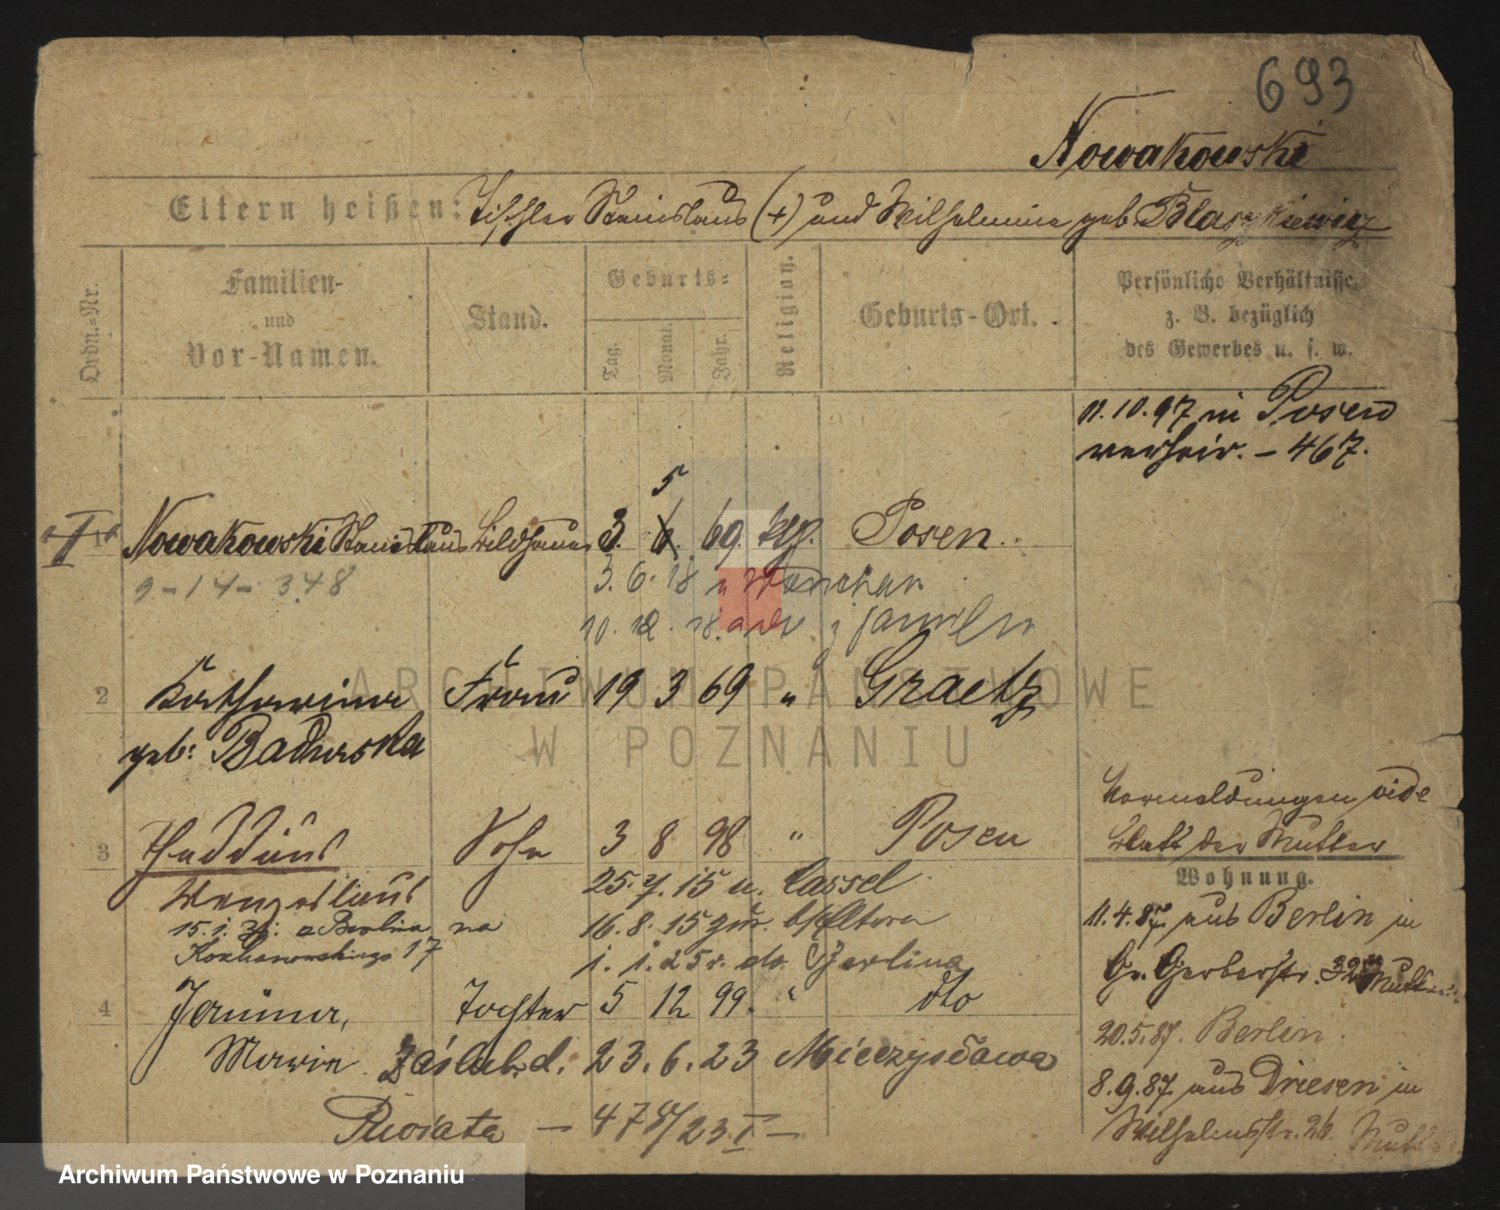 693
Nowakowski
Eltern heißen: Tischler Stanislaus (+) und Wilhelmine geb. Blaszkiewicz
Ordn.-Nr.
Familien-
und
Vor-Namen.
Stand.
Geburts-
Tag.
Monat.
Jahr.
Religion.
Geburts-Ort.
Persönliche Verhältnisse
z. B. bezüglich
des Gewerbes u. s. w.
11.10.97 in Posen
verheir. - 467.
5
I Nowakowski Stanislaus Bildhauer 3. 6. 69. Posen.
9-14-348
3. 6. 18 n
10. 12. 18.
2 Katharina Frau 19 3 69 " Graetz
geb: Badurska
3 Thaddäus Sohn 3 8 98 " Posen
Vermeldungen vide
Blatt der Mutter
Wohnung.
Wenzeslaus 25. 7. 15 n. Cassel
15.1. z Berlina na 16. 8. 15 zur. v/Eltern
17 1. 1. 25 r. do Berlina
4 Janina, Tochter 5 12 99. " dto
Marie Zaślub. d. 23. 6. 23 Mieczysława
Pioiata - 478/23 I -
11.4.87 aus Berlin in
Gr. Gerberstr. 32
20.5.87. Berlin.
8.9.87 aus Driesen in
Wilhelmsstr. 26.
ARCHIWUM PAŃSTWOWE
W POZNANIU
Archiwum Państwowe w Poznaniu